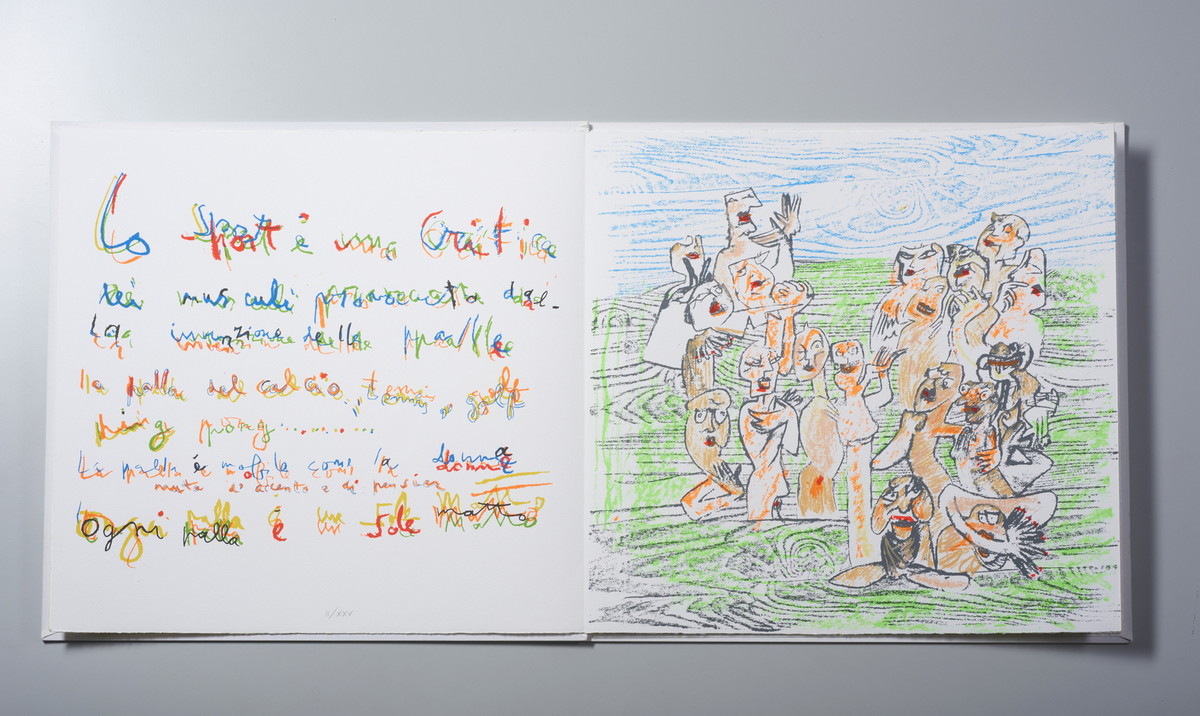 Lo sport è una critica
dei musculi provocata dal-
la invenzione delle palle
la palla nel calcio, tennis, golf
ping pong.........
La palla è mobile come la donna
muta d'accento e di pensier
Ogni palla è un sole matto
II/XXV